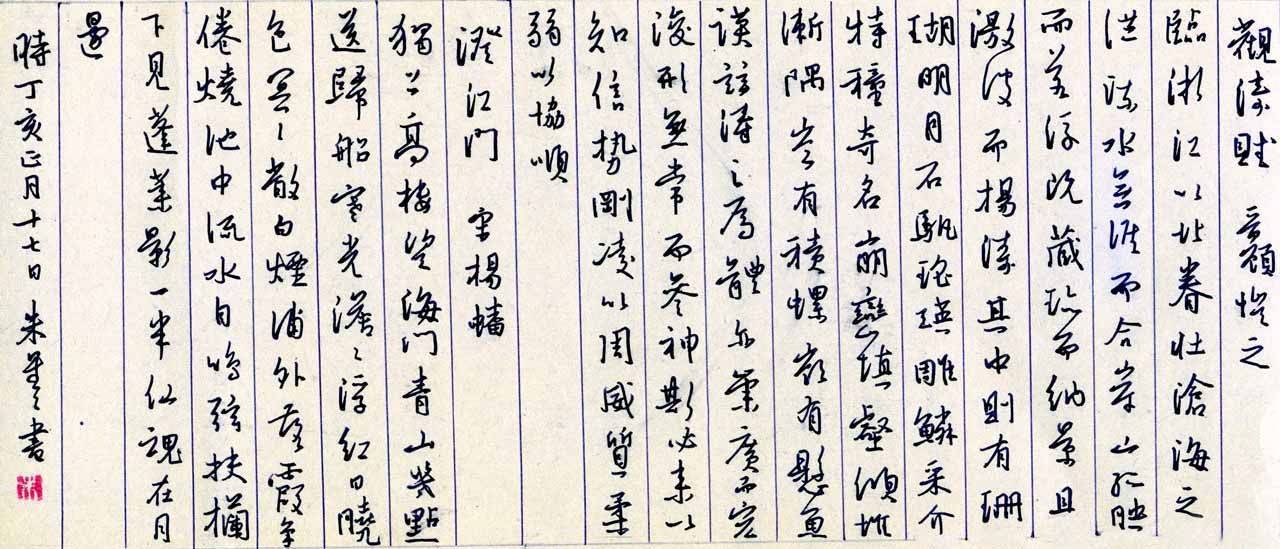 觀濤賦 晉顧愷之
臨浙江以北眷壯滄海之
洪流水無涯而合岸山孤映
而若浮既藏珍而納景且
激波而揚濤其中則有珊
瑚明月石帆瑤瑛雕鱗采介
特種奇名崩巒填壑傾堆
漸隅岑有積螺嶺有懸魚
謨茲濤之為體亦崇廣而宏
浚形無常而參神斯必來以
知信勢剛凌以周威質柔
弱以協順
澄江門 宋楊蟠
獨上高樓望海門青山幾點
送歸船寒光澹〻浮紅日曉
色冥〻散白煙浦外落霞爭
倦燒池中流水自鳴弦扶欄
下見蓬萊影一半仙魂在月
邊
時丁亥正月十七日 朱 書